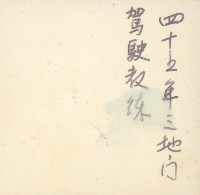 四十五年三地门
驾驶教练